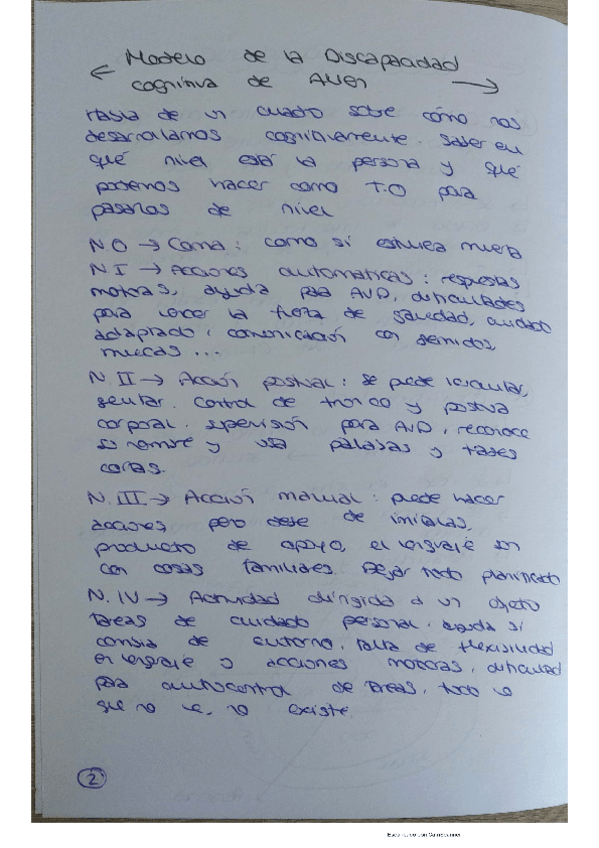 Modelo de la Discapacidad
cognitiva de Allen
Habla de un cuadro sobre cómo nos
desarrollamos cognitivamente. Saber en
qué nivel está la persona y qué
podemos hacer como T.O para
pasarlos de nivel
N O → Coma: como si estuviera muerta
N I → Acciones automáticas: respuestas
motoras, ayuda para AVD, dificultades
para vencer la fuerza de gravedad, cuidado
adaptado, comunicación con gemidos,
muecas...
N. II → Acción postural: se puede
sentar. Control de tronco y postura
corporal. supervisión para AVD, reconoce
su nombre y usa palabras y frases
cortas.
N. III → Acción manual: puede hacer
acciones pero debe de iniciarlas,
producto de apoyo, el lenguaje son
con cosas familiares. Dejar todo planificado
N. IV → Actividad dirigida a un objeto
tareas de cuidado personal. ayuda si
cambia de entorno. falta de flexibilidad
en lenguaje y acciones motoras, dificultad
para autocontrol de tareas, todo lo
que no ve, no existe.
2
Escaneado con CamScanner